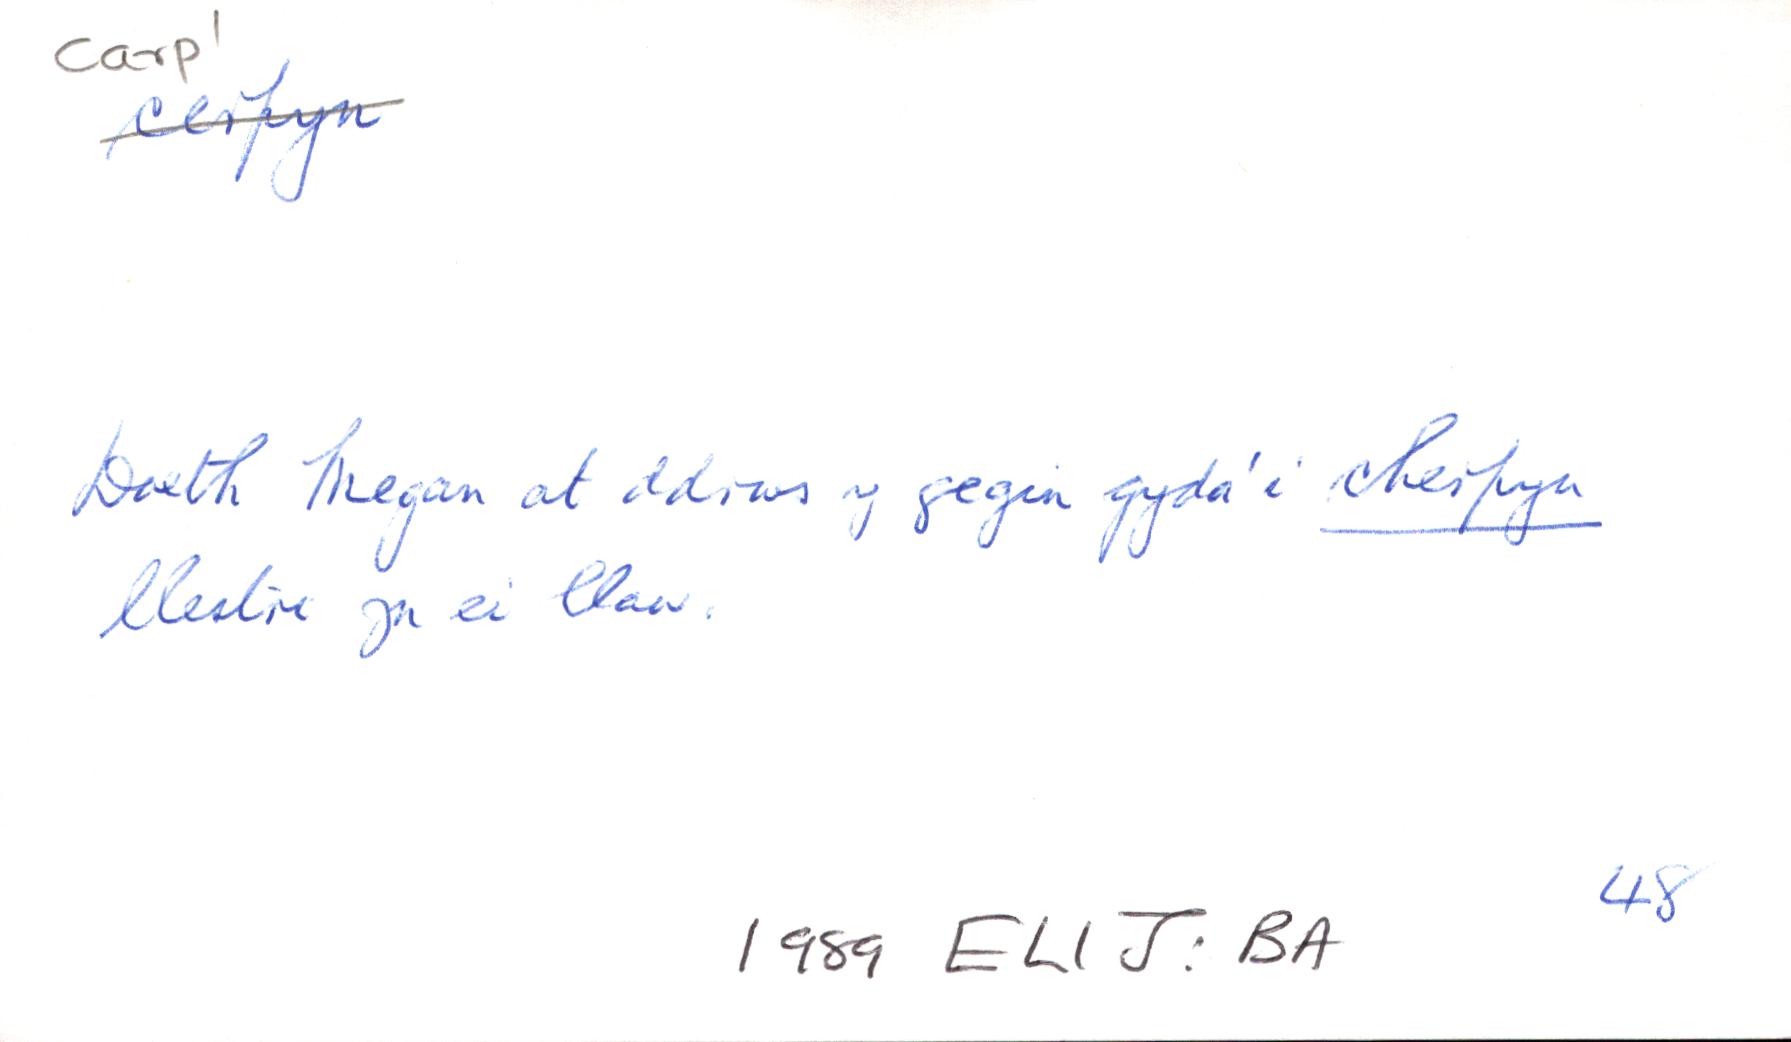 carp¹
cerpyn
Daeth Megan at ddrws y gegin gyda'i cherpyn
llestri yn ei llaw.
48
1989 ELIJ: BA